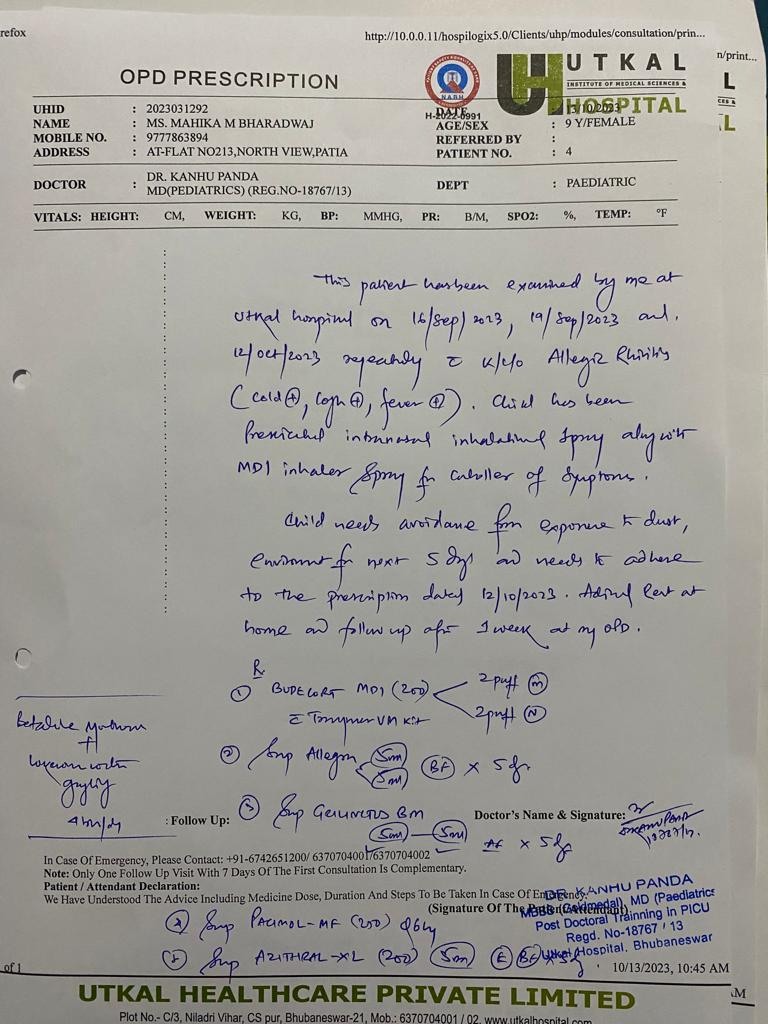 refox
http://10.0.0.11/hospilogix5.0/Clients/uhp/modules/consultation/prin...
n/print...
OPD PRESCRIPTION
NABH
H-2022-0991
UH UTKAL
INSTITUTE OF MEDICAL SCIENCES &
HOSPITAL
L
CES &
L
UHID : 2023031292
DATE : 13/10/2023
NAME : MS. MAHIKA M BHARADWAJ
AGE/SEX : 9 Y/FEMALE
MOBILE NO. : 9777863894
REFERRED BY :
ADDRESS : AT-FLAT NO213,NORTH VIEW,PATIA
PATIENT NO. : 4
DOCTOR : DR. KANHU PANDA
MD(PEDIATRICS) (REG.NO-18767/13)
DEPT : PAEDIATRIC
VITALS: HEIGHT: CM, WEIGHT: KG, BP: MMHG, PR: B/M, SPO2: %, TEMP: °F
This patient has been examined by me at
Utkal hospital on 16/Sep/2023, 19/Sep/2023 and
12/Oct/2023 repeatedly c̄ K/C/O Allergic Rhinitis
(cold +, cough +, fever +). Child has been
Prescribed intranasal inhalational spray along with
MDI inhaler spray for of symptoms.
Child needs avoidance from exposure to dust,
environment for next 5 days and needs to adhere
to the prescription dated 12/10/2023. Advised Rest at
home and follow up after 1 week at my OPD.
Rx
① BUDECORT MDI (200) 2 puff M
2 puff N
c̄ VM Kit
② Syp Allegra 5ml
5ml BF × 5 days
Betadine
+
Lukewarm water
gargling
③ Syp BM
5ml — 5ml AF × 5 days
: Follow Up:
Doctor's Name & Signature:
In Case Of Emergency, Please Contact: +91-6742651200/ 6370704001/6370704002
Note: Only One Follow Up Visit With 7 Days Of The First Consultation Is Complementary.
Patient / Attendant Declaration:
We Have Understood The Advice Including Medicine Dose, Duration And Steps To Be Taken In Case Of Emergency.
(Signature Of The Patient/Attendant)
DR. KANHU PANDA
MBBS (Goldmedal), MD (Paediatrics
Post Doctoral Trainning in PICU
Regd. No-18767 / 13
Utkal Hospital. Bhubaneswar
④ Syp PACIMOL-MF (200) Q6hly
⑤ Syp AZITHRAL-XL (200) 5ml BF × 5d
of 1
10/13/2023, 10:45 AM
AM
UTKAL HEALTHCARE PRIVATE LIMITED
Plot No.- C/3, Niladri Vihar, CS pur, Bhubaneswar-21, Mob.: 6370704001 / 02, www.utkalhospital.com